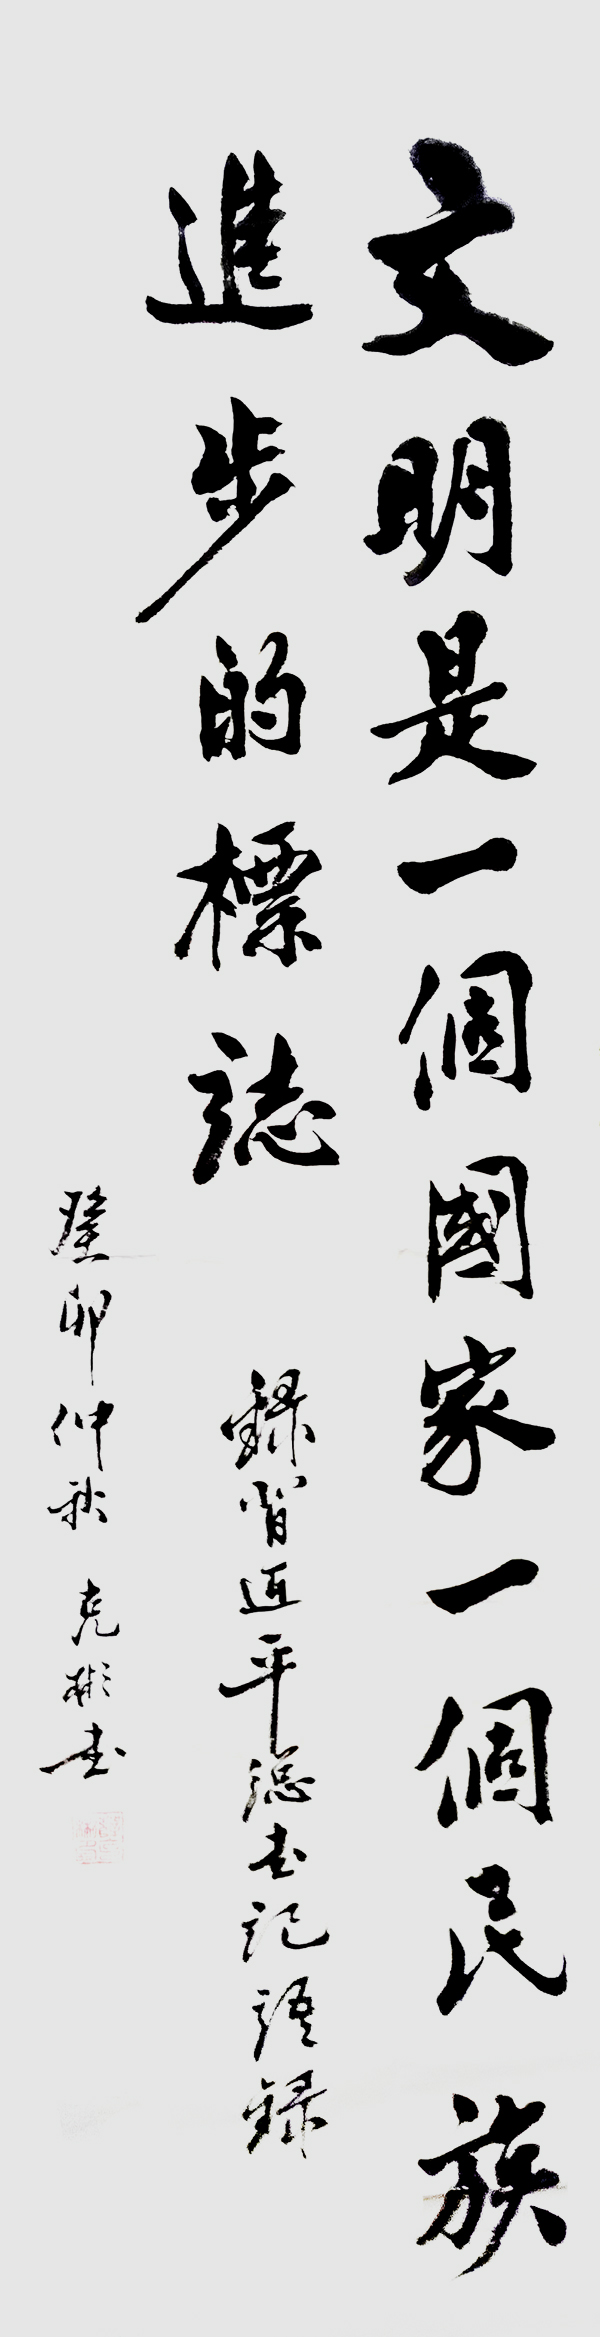 文明是一個國家一個民族
進步的標誌
錄習近平總书記語錄
癸卯仲秋 克彬书